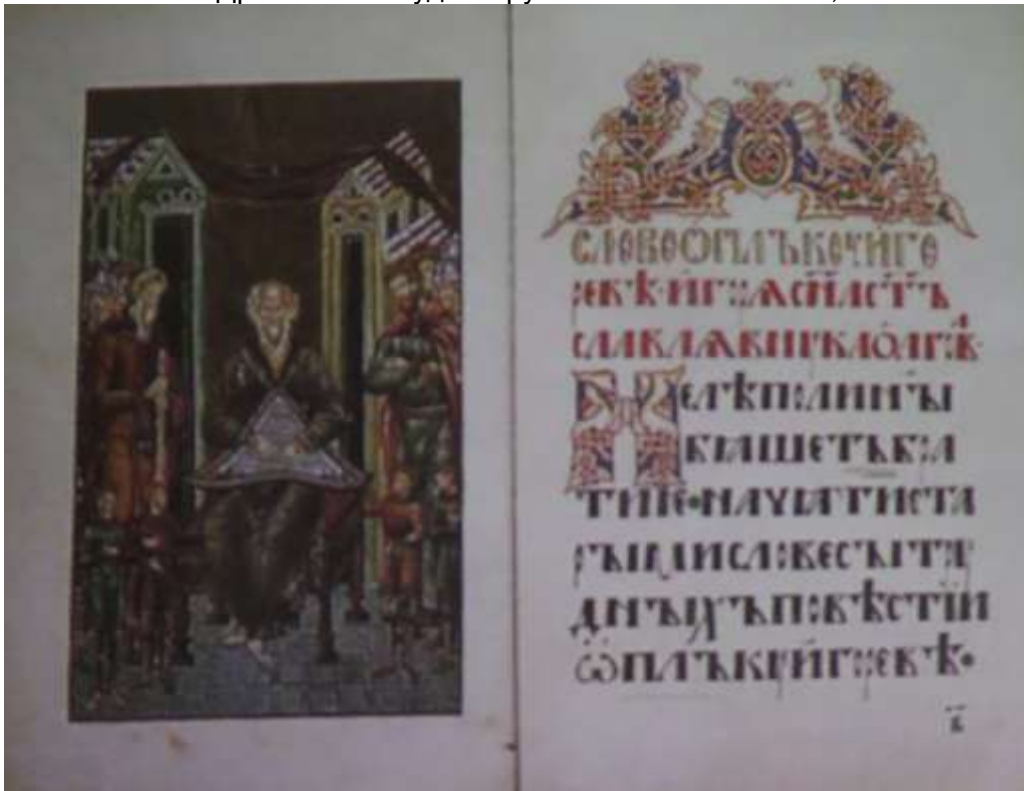 СЛОВОѠПЛЪКꙊИГО
РЕВѢ·ИГОРѦСН҃АСТ҃Ъ
СЛАВЛѦВНꙊКАОЛГОВ
НЕЛѢПОЛИНЪІ
БѦШЕТЪБРА
ТИЕ·НАЧѦТИСТА
РЪІМИСЛОВЕСЪІТРꙊ
ДНЪІХЪПОВѢСТЇИ
ѠПЛЪКꙊИГОРЕВѢ·